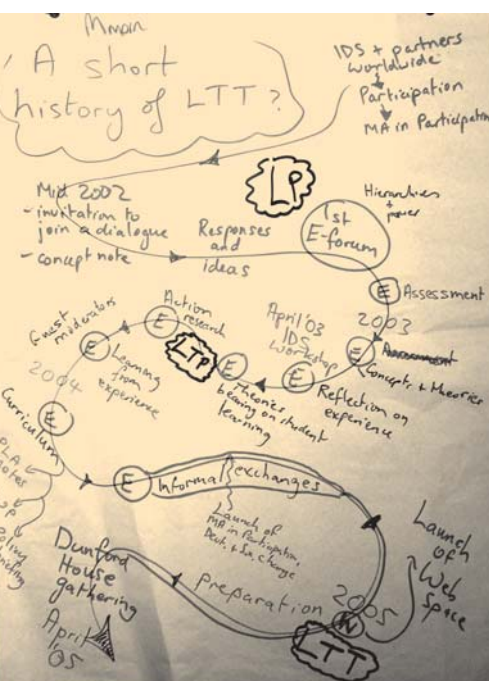 Mmm
A short
history of LTT?
IDS + partners
worldwide
Participation
MA in Participation
LP
Mid 2002
- invitation to
join a dialogue
- concept note
Responses
and
ideas
1st
E-forum
Hierarchies
+
power
E Assessment
2003
E
Concepts + theories
April '03
IDS
workshop
E
Reflection on
experience
E
Theories
bearing on student
learning
LTP
Action
research
E
Guest
moderators
E
Learning
from
experience
2004
Curriculum
E
PLA
notes
E
Informal exchanges
Launch of
MA in Participation,
Dev. + Soc. change
Dunford
House
gathering
April
'05
preparation
2005
N
LTT
Launch
of
Web
Space